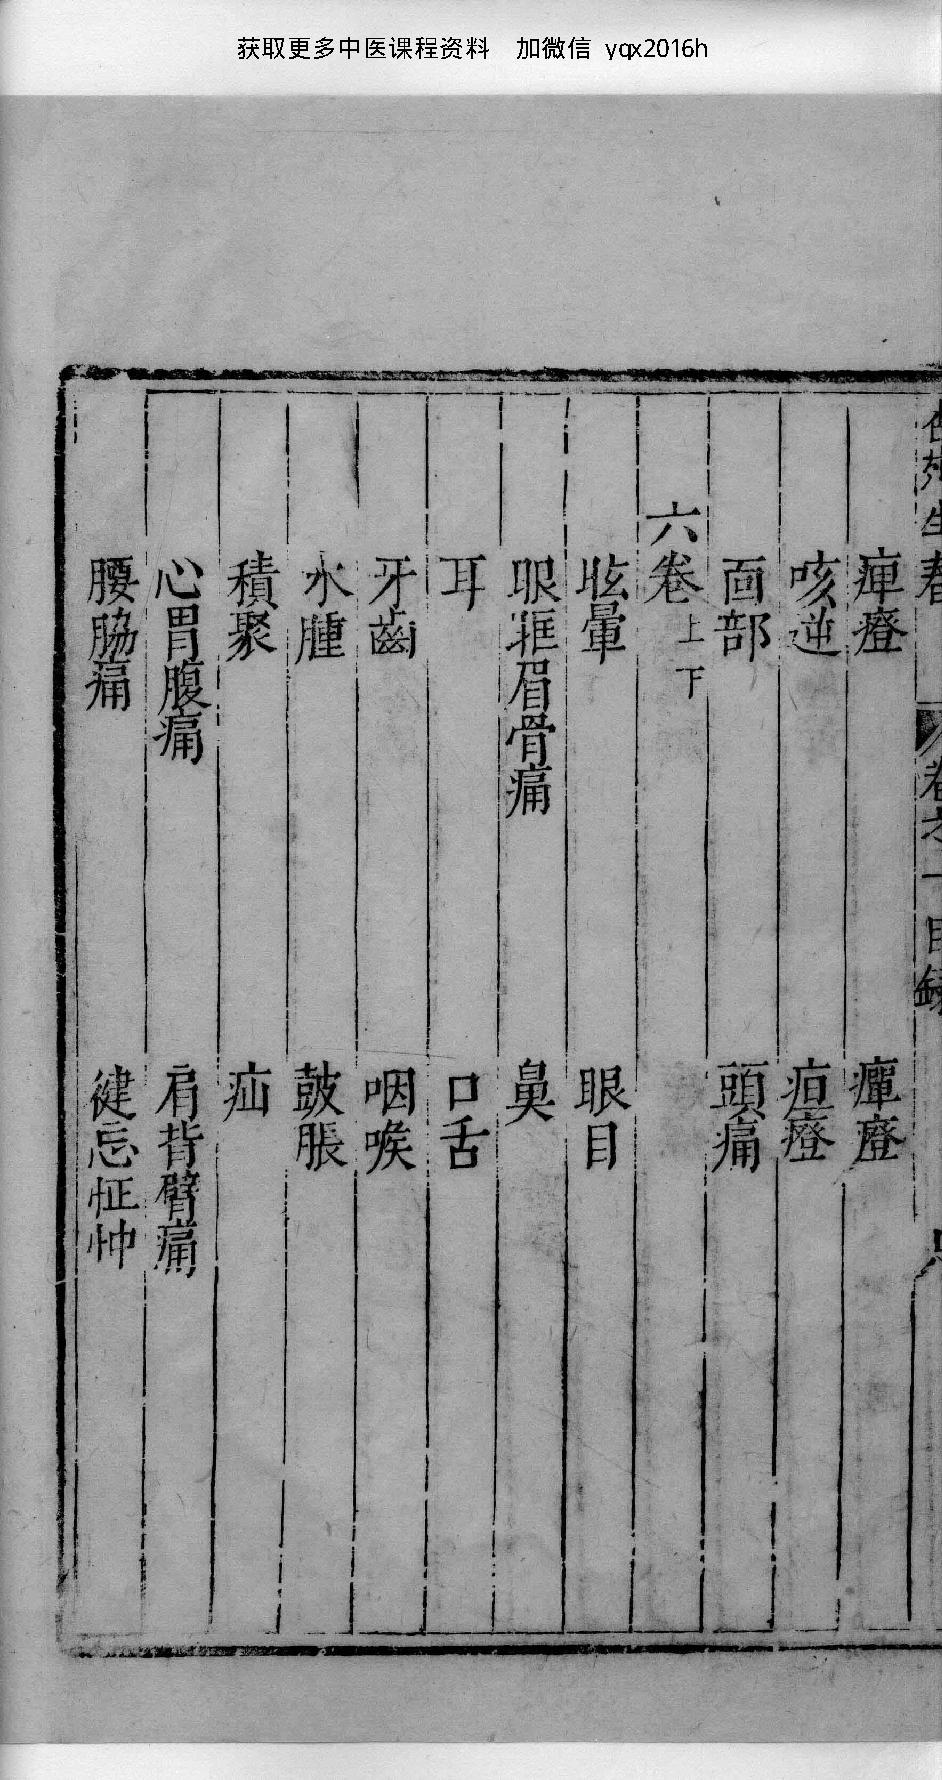 获取更多中医课程资料 加微信 yqx2016h
卷之一目錄
痺證 癉證
咳逆 疸證
面部 頭痛
六卷 上 下
眩暈 眼目
眼眶眉骨痛 鼻
耳 口舌
牙齒 咽喉
水腫 鼓脹
積聚 疝
心胃腹痛 肩背臂痛
腰脇痛 健忘怔忡